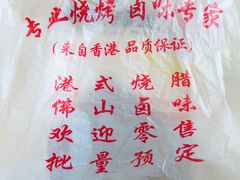 专业烧烤 卤味专家
(来自香港 品质保证)
港式烧腊
佛山卤味
欢迎零售
批量预定